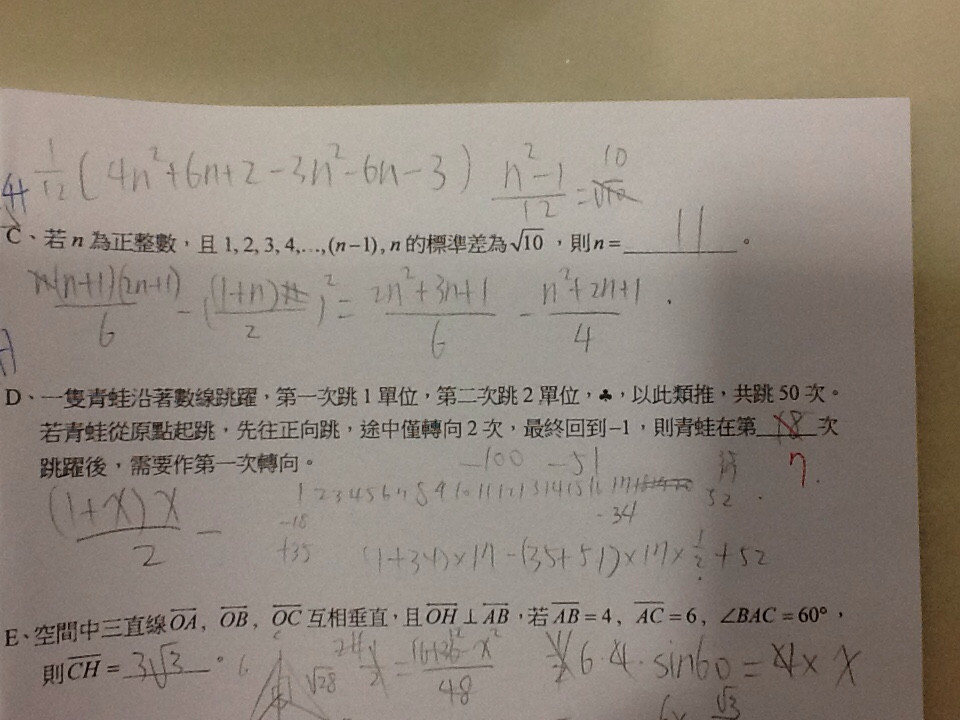 1/12 ( 4n²+6n+2-3n²-6n-3 ) n²-1/12 = 10
C、若 n 為正整數，且 1, 2, 3, 4,…,(n−1), n 的標準差為√10 ，則 n = 11 。
n(n+1)(2n+1)/6 - ((1+n)n/2)² = 2n²+3n+1/6 - n²+2n+1/4
D、一隻青蛙沿著數線跳躍，第一次跳 1 單位，第二次跳 2 單位，♣，以此類推，共跳 50 次。
若青蛙從原點起跳，先往正向跳，途中僅轉向 2 次，最終回到−1，則青蛙在第 18 次
跳躍後，需要作第一次轉向。 7.
-100 -51
1 2 3 4 5 6 7 8 9 10 11 12 13 14 15 16 17 52
(1+x)x/2 - -18 -34
+35 (1+34)×17-(35+51)×17×1/2+52
E、空間中三直線OA, OB, OC 互相垂直，且OH⊥AB，若AB=4, AC=6, ∠BAC=60°，
則CH= 3√3 。 6 √28 = 16+36-x²/48 6·4·sin60=4x x
√3